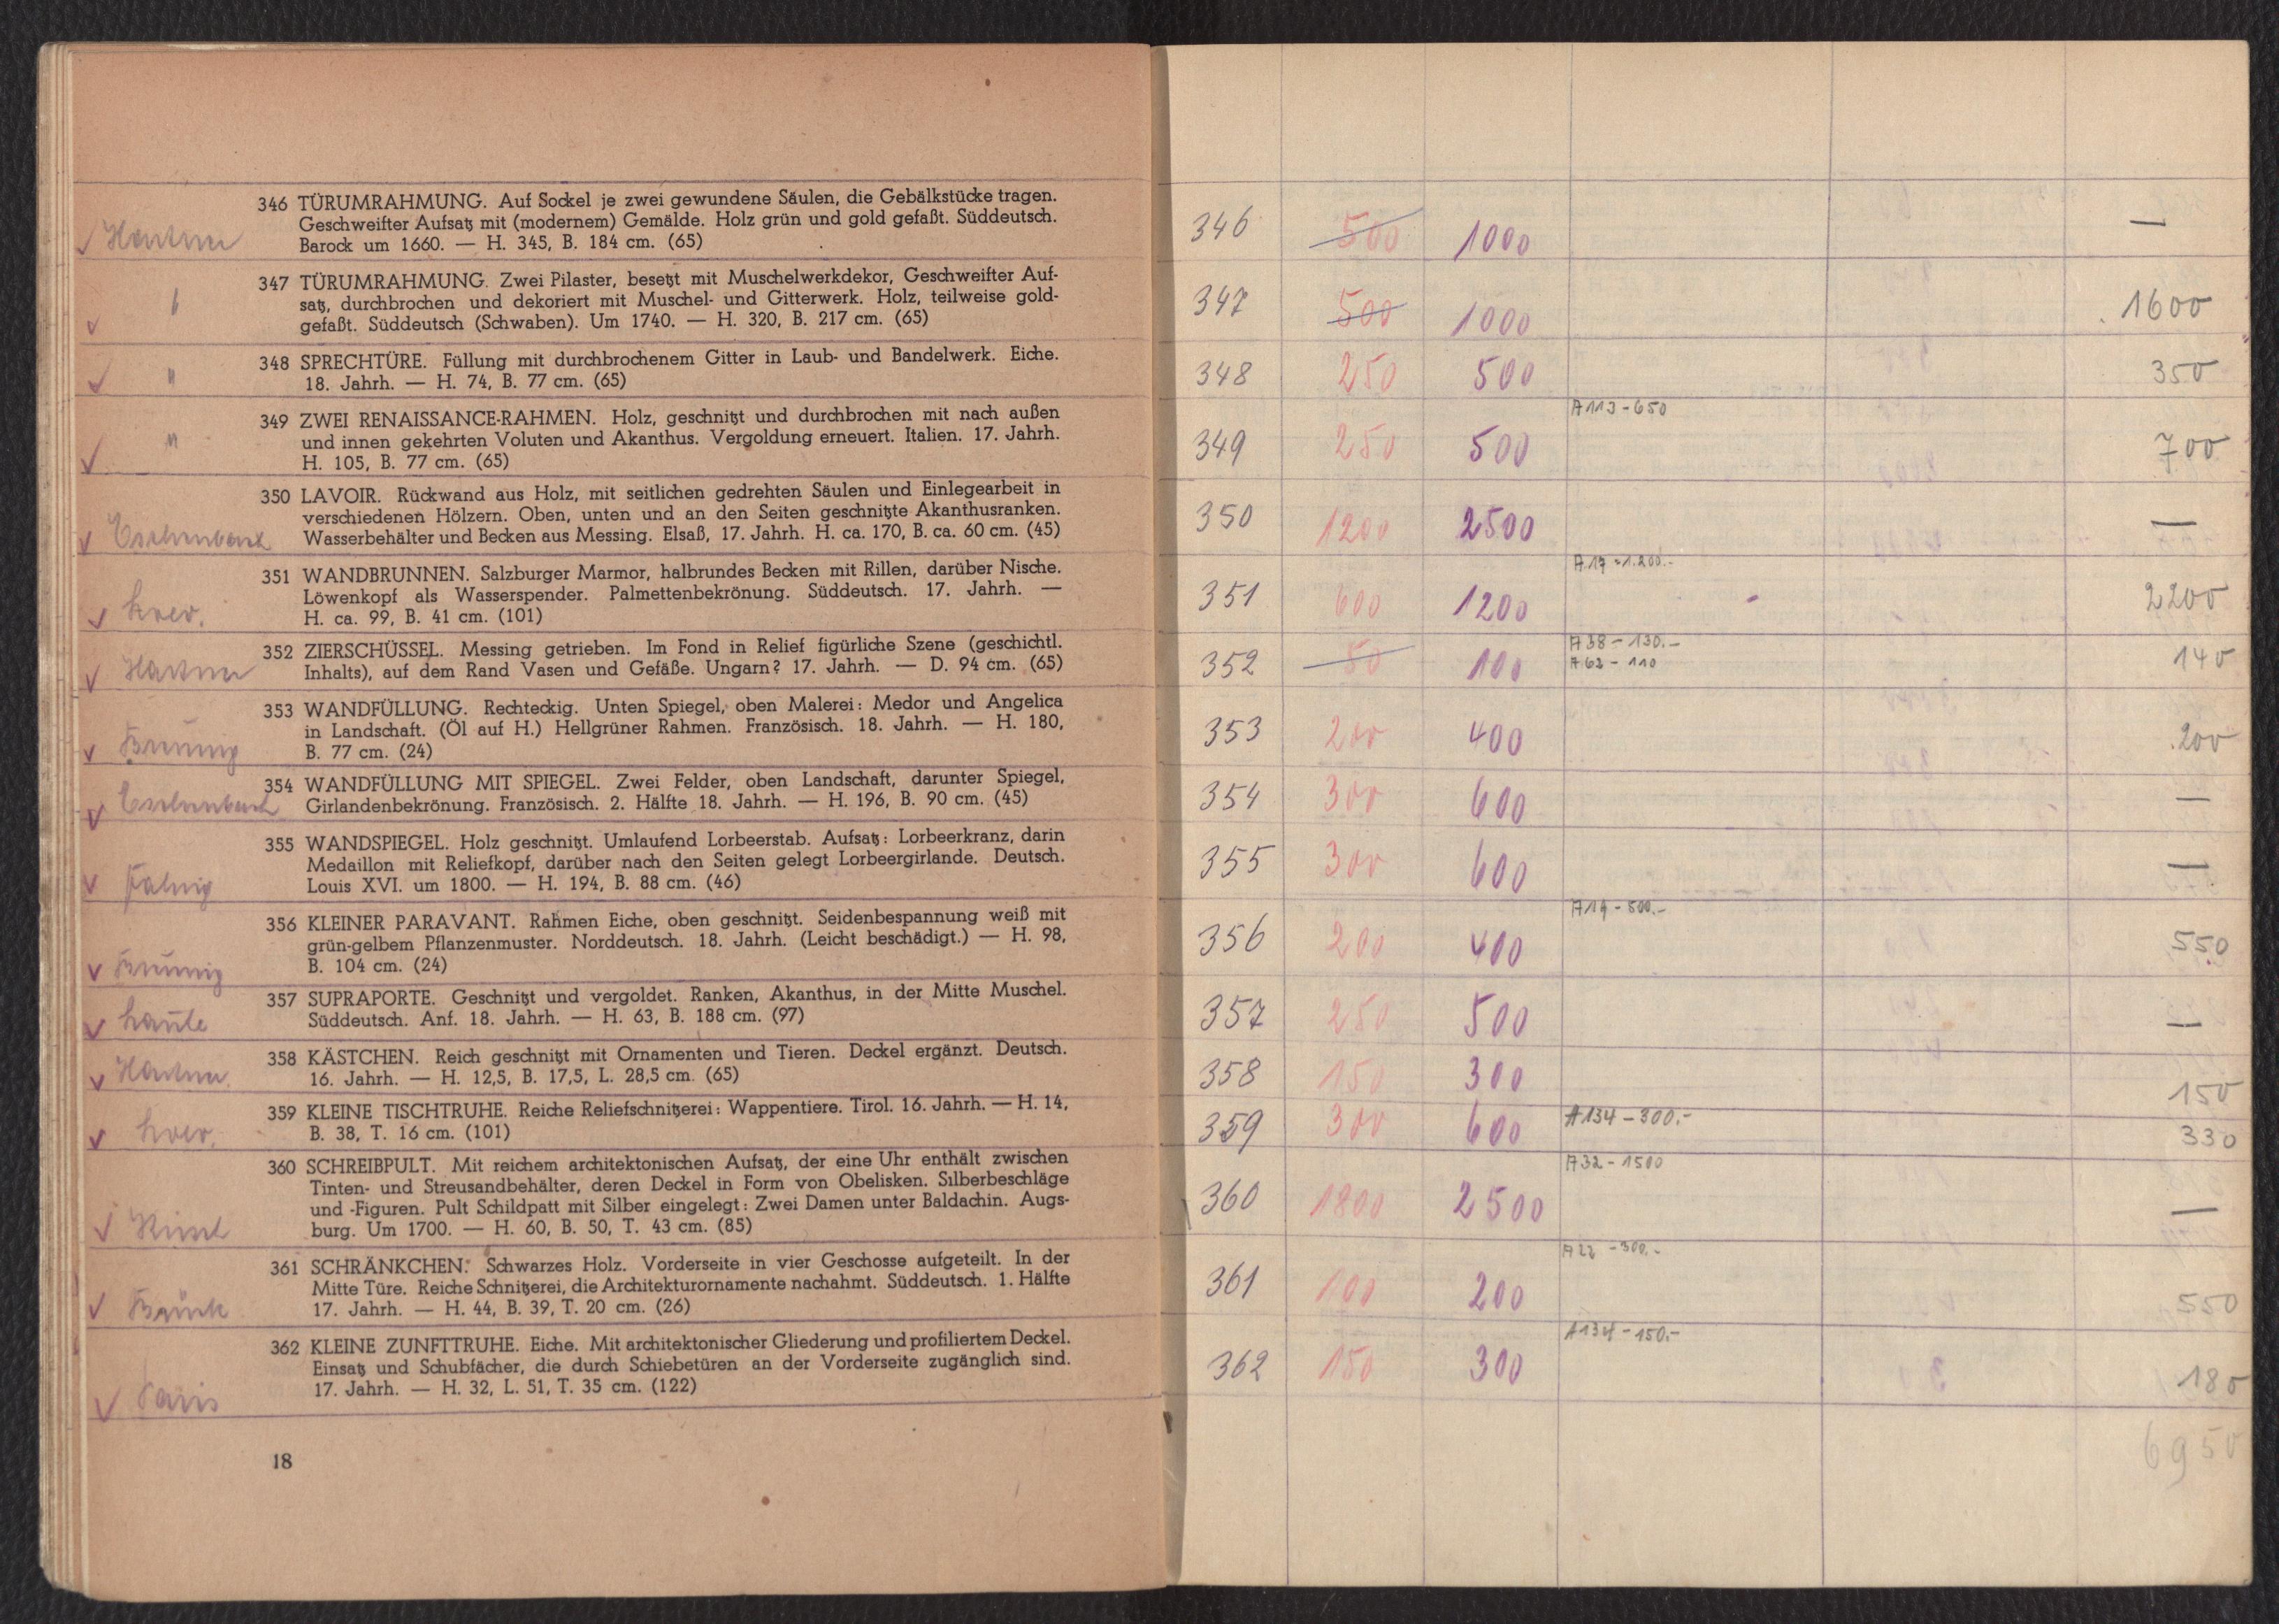 346 TÜRUMRAHMUNG. Auf Sockel je zwei gewundene Säulen, die Gebälkstücke tragen.
Geschweifter Aufsatz mit (modernem) Gemälde. Holz grün und gold gefaßt. Süddeutsch.
Barock um 1660. — H. 345, B. 184 cm. (65)
347 TÜRUMRAHMUNG. Zwei Pilaster, besetzt mit Muschelwerkdekor, Geschweifter Auf-
satz, durchbrochen und dekoriert mit Muschel- und Gitterwerk. Holz, teilweise gold-
gefaßt. Süddeutsch (Schwaben). Um 1740. — H. 320, B. 217 cm. (65)
348 SPRECHTÜRE. Füllung mit durchbrochenem Gitter in Laub- und Bandelwerk. Eiche.
" 18. Jahrh. — H. 74, B. 77 cm. (65)
349 ZWEI RENAISSANCE-RAHMEN. Holz, geschnitzt und durchbrochen mit nach außen
" und innen gekehrten Voluten und Akanthus. Vergoldung erneuert. Italien. 17. Jahrh.
H. 105, B. 77 cm. (65)
350 LAVOIR. Rückwand aus Holz, mit seitlichen gedrehten Säulen und Einlegearbeit in
verschiedenen Hölzern. Oben, unten und an den Seiten geschnitzte Akanthusranken.
Eschenbach Wasserbehälter und Becken aus Messing. Elsaß, 17. Jahrh. H. ca. 170, B. ca. 60 cm. (45)
351 WANDBRUNNEN. Salzburger Marmor, halbrundes Becken mit Rillen, darüber Nische.
Löwenkopf als Wasserspender. Palmettenbekrönung. Süddeutsch. 17. Jahrh. —
H. ca. 99, B. 41 cm. (101)
352 ZIERSCHÜSSEL. Messing getrieben. Im Fond in Relief figürliche Szene (geschichtl.
Inhalts), auf dem Rand Vasen und Gefäße. Ungarn? 17. Jahrh. — D. 94 cm. (65)
353 WANDFÜLLUNG. Rechteckig. Unten Spiegel, oben Malerei: Medor und Angelica
in Landschaft. (Öl auf H.) Hellgrüner Rahmen. Französisch. 18. Jahrh. — H. 180,
B. 77 cm. (24)
354 WANDFÜLLUNG MIT SPIEGEL. Zwei Felder, oben Landschaft, darunter Spiegel,
Eschenbach Girlandenbekrönung. Französisch. 2. Hälfte 18. Jahrh. — H. 196, B. 90 cm. (45)
355 WANDSPIEGEL. Holz geschnitzt. Umlaufend Lorbeerstab. Aufsatz: Lorbeerkranz, darin
Medaillon mit Reliefkopf, darüber nach den Seiten gelegt Lorbeergirlande. Deutsch.
Louis XVI. um 1800. — H. 194, B. 88 cm. (46)
356 KLEINER PARAVANT. Rahmen Eiche, oben geschnitzt. Seidenbespannung weiß mit
grün-gelbem Pflanzenmuster. Norddeutsch. 18. Jahrh. (Leicht beschädigt.) — H. 98,
B. 104 cm. (24)
357 SUPRAPORTE. Geschnitzt und vergoldet. Ranken, Akanthus, in der Mitte Muschel.
Süddeutsch. Anf. 18. Jahrh. — H. 63, B. 188 cm. (97)
358 KÄSTCHEN. Reich geschnitzt mit Ornamenten und Tieren. Deckel ergänzt. Deutsch.
16. Jahrh. — H. 12,5, B. 17,5, L. 28,5 cm. (65)
359 KLEINE TISCHTRUHE. Reiche Reliefschnitzerei: Wappentiere. Tirol. 16. Jahrh. — H. 14,
B. 38, T. 16 cm. (101)
360 SCHREIBPULT. Mit reichem architektonischen Aufsatz, der eine Uhr enthält zwischen
Tinten- und Streusandbehälter, deren Deckel in Form von Obelisken. Silberbeschläge
und -Figuren. Pult Schildpatt mit Silber eingelegt: Zwei Damen unter Baldachin. Augs-
burg. Um 1700. — H. 60, B. 50, T. 43 cm. (85)
361 SCHRÄNKCHEN. Schwarzes Holz. Vorderseite in vier Geschosse aufgeteilt. In der
Mitte Türe. Reiche Schnitzerei, die Architekturornamente nachahmt. Süddeutsch. 1. Hälfte
17. Jahrh. — H. 44, B. 39, T. 20 cm. (26)
362 KLEINE ZUNFTTRUHE. Eiche. Mit architektonischer Gliederung und profiliertem Deckel.
Einsatz und Schubfächer, die durch Schiebetüren an der Vorderseite zugänglich sind.
17. Jahrh. — H. 32, L. 51, T. 35 cm. (122)
18
346 500 1000 —
347 500 1000 1600
348 250 500 350
A 113 - 650
349 250 500 700
350 1200 2500 —
A 17 - 1.200.-
351 600 1200 2200
A 38 - 130.-
352 50 100 A 62 - 110 140
353 200 400 200
354 300 600 —
355 300 600 —
A 19 - 500.-
356 200 400 550
357 250 500 —
358 150 300 150
359 300 600 A 134 - 300.- 330
A 32 - 1500
360 1800 2500 —
A 22 - 300.-
361 100 200 550
A 134 - 150.-
362 150 300 180
6950